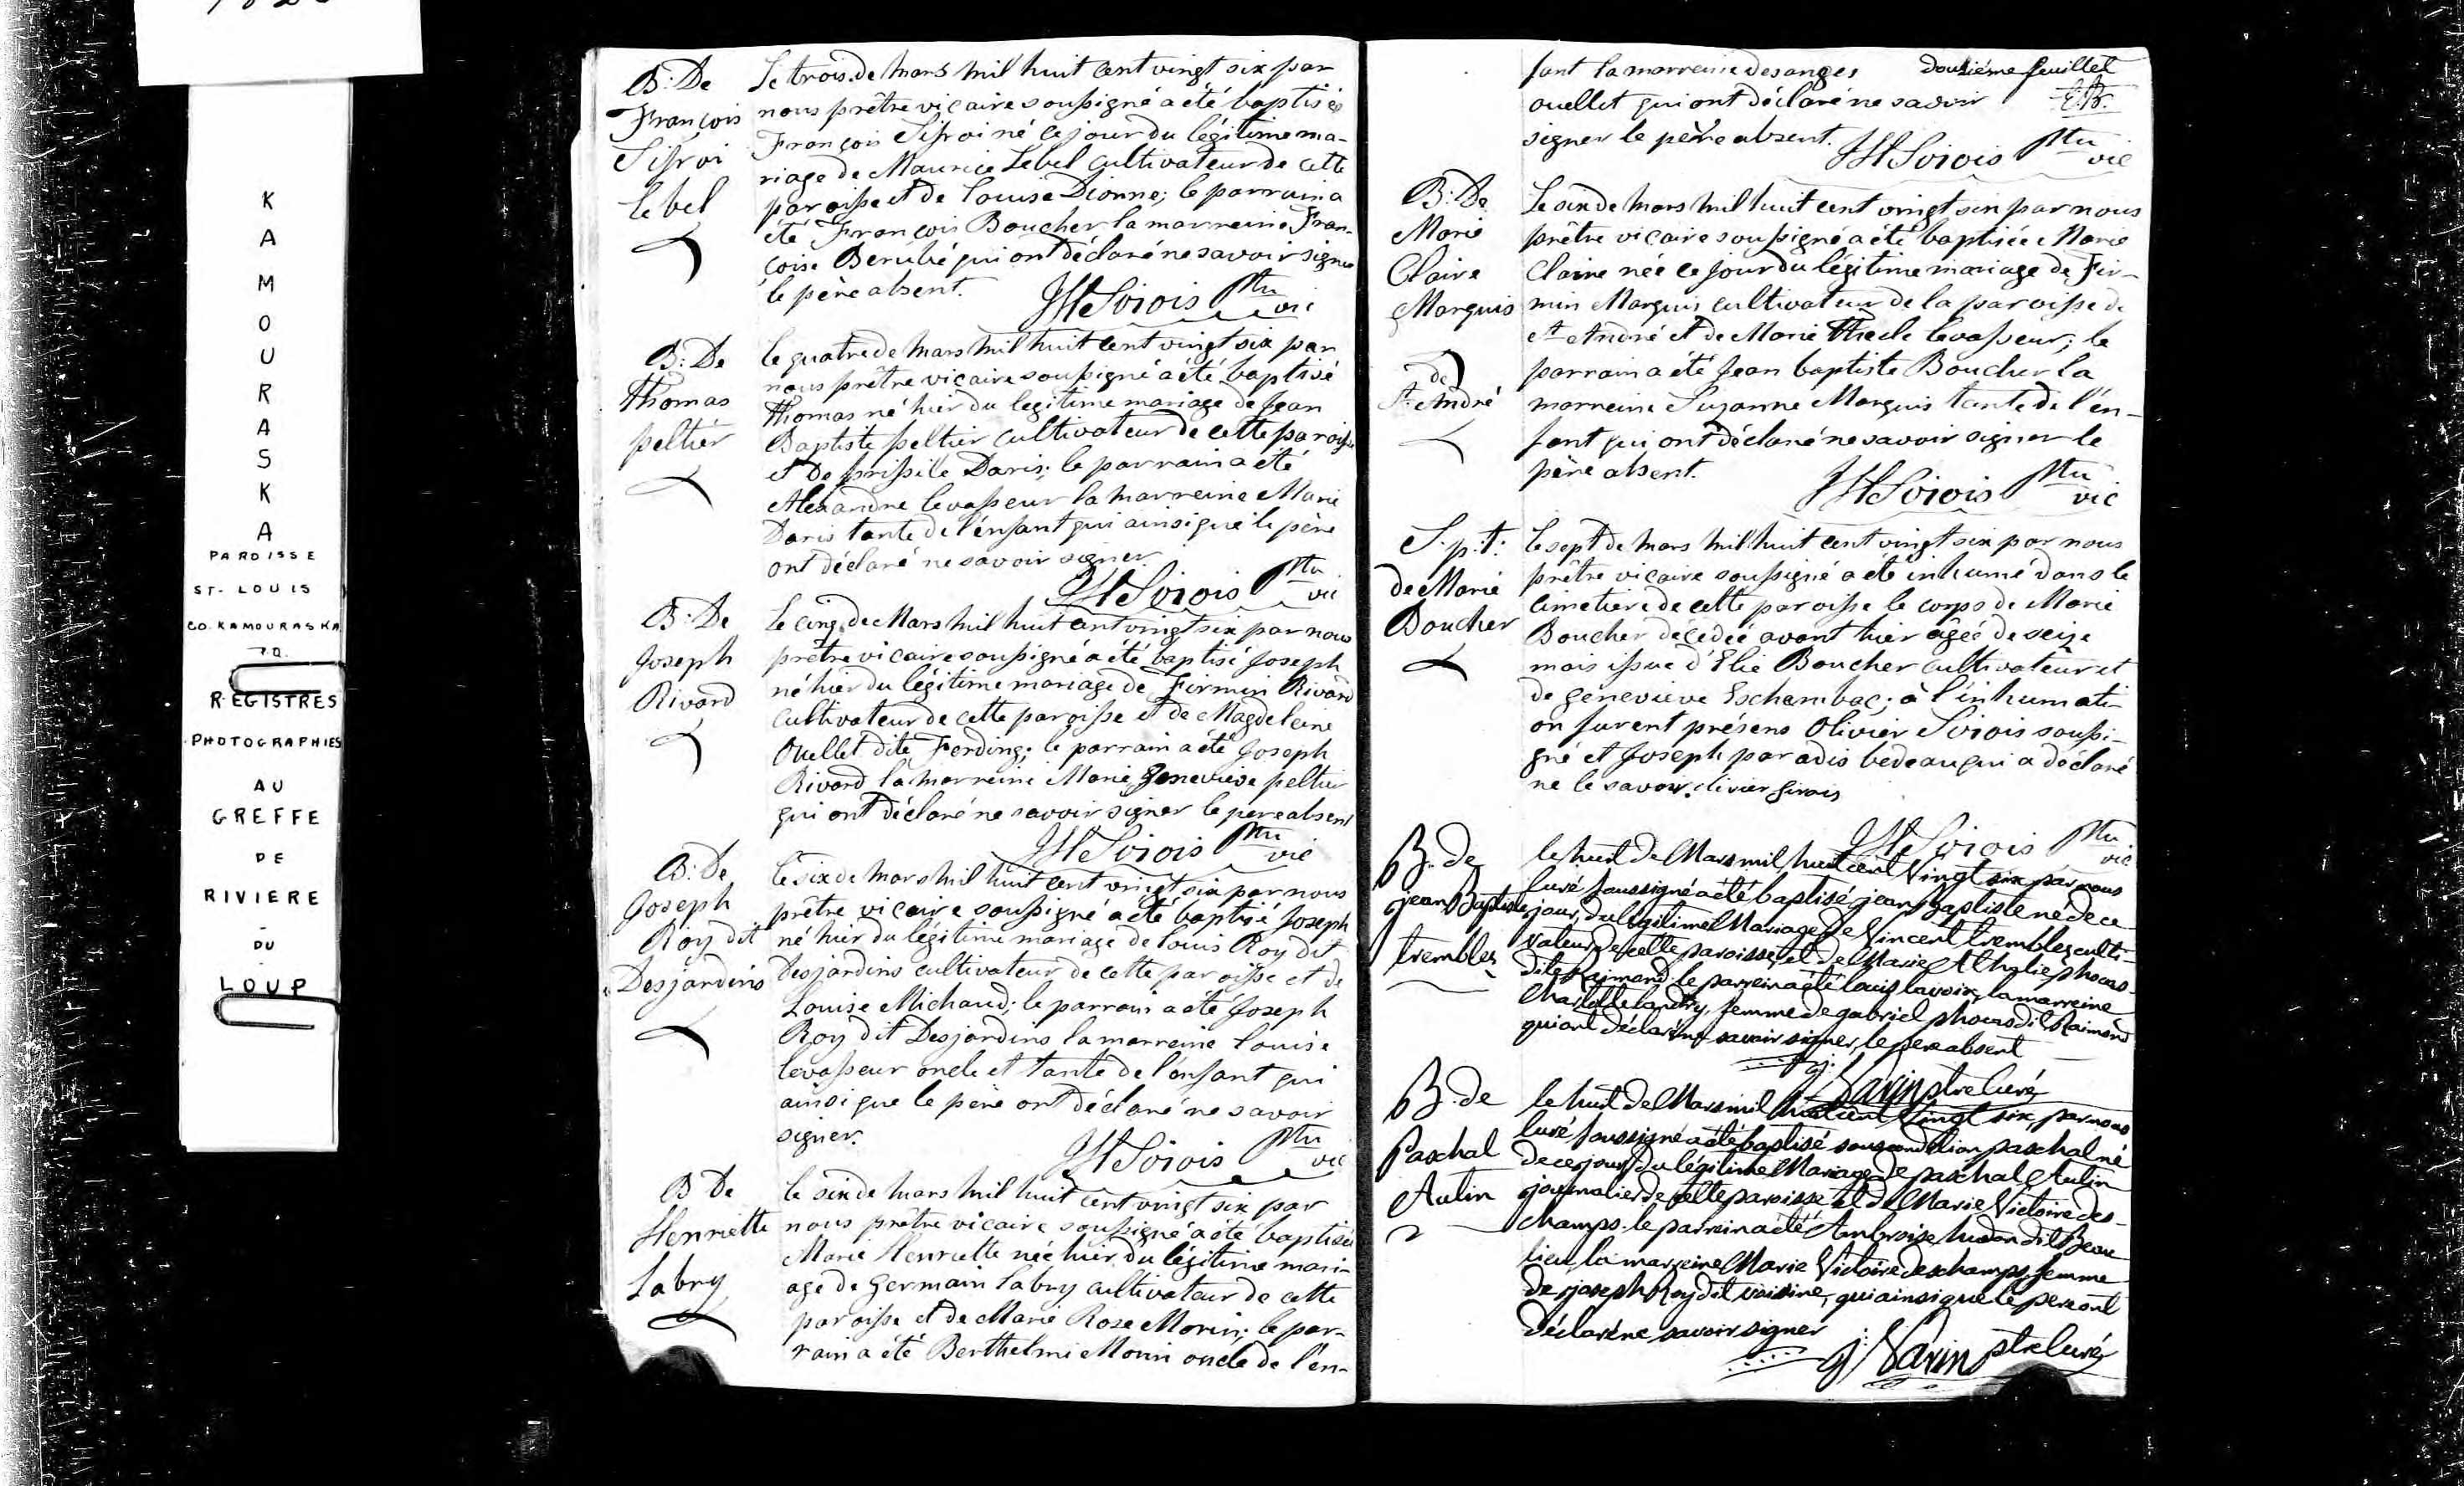 KAMOURASKA
PAROISSE
ST- LOUIS
CO. KAMOURASKA
P.Q.
REGISTRES
PHOTOGRAPHIES
AU
GREFFE
DE
RIVIERE
-
DU
-
LOUP
B: De
François
Sifroi
Lebel
Le trois de mars mil huit cent vingt six par
nous prêtre vicaire soussigné a été baptisé
François Sifroi né ce jour du légitime ma-
riage de Maurice Lebel cultivateur de cette
paroisse et de Louise Dionne; le parrain a
été François Boucher la marreine Fran-
çoise Berubé qui ont déclaré ne savoir signer
le père absent.
Sirois Ptre
vic
B: De
Thomas
peltier
le quatre de mars mil huit cent vingt six par
nous prêtre vicaire soussigné a été baptisé
Thomas né hier du legitime mariage de Jean
Baptiste peltier cultivateur de cette paroisse
et de prissile Daris; le parrain a été
Alexandre levasseur la marreine Marie
Daris tante de l'enfant qui ainsi que le père
ont déclaré ne savoir signer.
Sirois Ptre
vic
B: De
Joseph
Rivard
Le cinq de Mars mil huit cent vingt six par nous
prêtre vicaire soussigné a été baptisé Joseph
né hier du légitime mariage de Firmin Rivard
cultivateur de cette paroisse et de Magdeleine
Ouellet dite Ferding; le parrain a été Joseph
Rivard la marreine Marie Genevieve peltier
qui ont déclaré ne savoir signer le pere absent
Sirois Ptre
vic
B: De
Joseph
Roy dit
Desjardins
Le six de mars mil huit cent vingt six par nous
prêtre vicaire soussigné a été baptisé Joseph
né hier du légitime mariage de Louis Roy dit
Desjardins cultivateur de cette paroisse et de
Louise Michaud; le parrain a été Joseph
Roy dit Desjardins la marreine Louise
levasseur oncle et tante de l'enfant qui
ainsi que le père ont déclaré ne savoir
signer.
Sirois Ptre
vic
B De
Henriette
Labry
le six de mars mil huit cent vingt six par
nous prêtre vicaire soussigné a été baptisée
Marie Henriette née hier du légitime mari-
age de Germain Labry cultivateur de cette
paroisse et de Marie Rose Morin; le par-
rain a été Berthelmi Morin oncle de l'en-
douzième feuillet
fant la marreine desanges
ouellet qui ont déclaré ne savoir
signer le père absent.
Sirois Ptre
vic
B: De
Marie
Claire
Marquis
de
St André
Le six de mars mil huit cent vingt six par nous
prêtre vicaire soussigné a été baptisée Marie
Claire née ce jour du légitime mariage de Fir-
min Marquis cultivateur de la paroisse de
St André et de Marie Thecle levasseur; le
parrain a été Jean baptiste Boucher la
marreine Suzanne Marquis tante de l'en-
fant qui ont déclaré ne savoir signer le
père absent.
Sirois Ptre
vic
S.p.t:
de Marie
Boucher
Le sept de mars mil huit cent vingt six par nous
prêtre vicaire soussigné a été inhumé dans le
cimetiere de cette paroisse le corps de Marie
Boucher décedée avant hier âgée de seize
mois issue d'Elie Boucher cultivateur et
de genevieve Eschambac; à l'inhumati-
on furent présens Olivier Sirois soussi-
gné et Joseph paradis bedeau qui a déclaré
ne le savoir. olivier sirois
Sirois Ptre
vic
B. de
jean Baptiste
trembley
le huit de Mars mil huit cent vingt six par nous
curé soussigné a été baptisé jean Baptiste né de ce
jour, du légitime Mariage de Vincent trembley culti-
vateur de cette paroisse, et de Marie Athalie phocas
dite Raimond. le parrein a été louis lavoix, la marreine
Charlotte landry, femme de gabriel phocas dit Raimond
qui ont déclaré ne savoir signer, le pere absent
j. Varin ptre Curé
B. de
Paschal
Autin
le huit de Mars mil huit cent vingt six, par nous
curé soussigné a été baptisé sous condition paschal né
de ce jour du légitime Mariage de paschal Autin
journalier de cette paroisse et de Marie Victoire des-
champs. le parrein a été Ambroise hudon dit Beau
lieu, la marreine Marie Victoire deschamps, femme
de joseph Roy dit voisine, qui ainsi que le pere ont
déclaré ne savoir signer
j: Varin ptre Curé